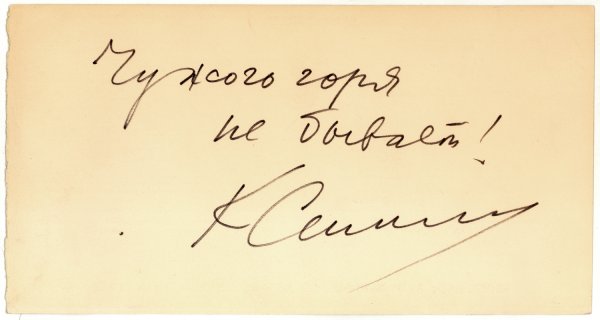 Чужого горя
не бывает!
К Симон